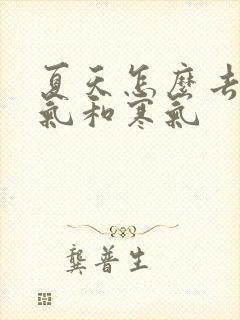 夏天怎麼去
氣和寒氣
龔普生